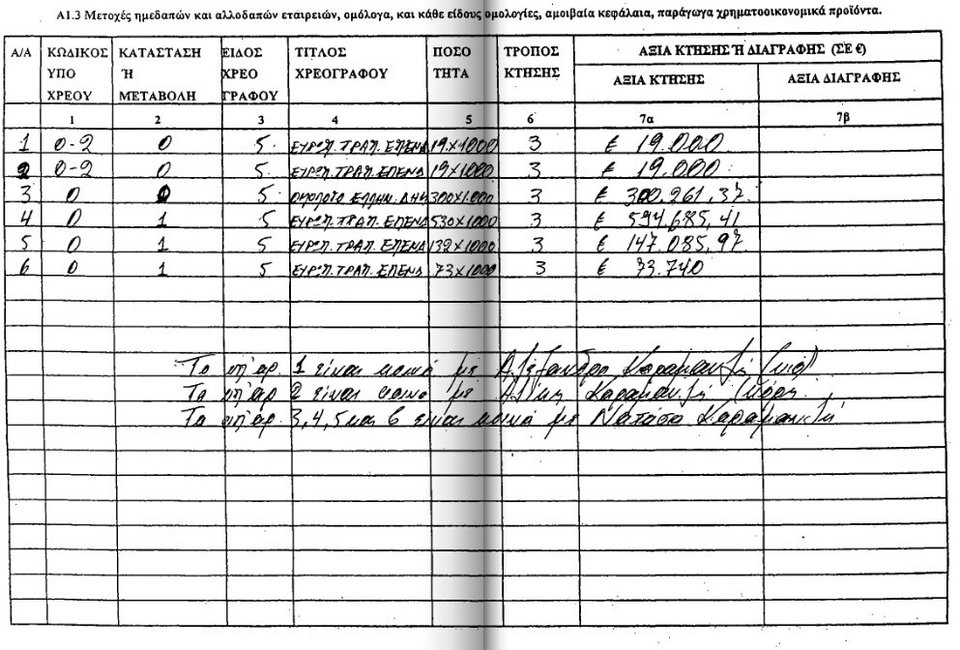 Α1.3 Μετοχές ημεδαπών και αλλοδαπών εταιρειών, ομόλογα, και κάθε είδους ομολογίες, αμοιβαία κεφάλαια, παράγωγα χρηματοοικονομικά προϊόντα.
Α/Α ΚΩΔΙΚΟΣ ΥΠΟ ΧΡΕΟΥ ΚΑΤΑΣΤΑΣΗ Ή ΜΕΤΑΒΟΛΗ ΕΙΔΟΣ ΧΡΕΟ ΓΡΑΦΟΥ ΤΙΤΛΟΣ ΧΡΕΟΓΡΑΦΟΥ ΠΟΣΟ ΤΗΤΑ ΤΡΟΠΟΣ ΚΤΗΣΗΣ ΑΞΙΑ ΚΤΗΣΗΣ Ή ΔΙΑΓΡΑΦΗΣ (ΣΕ €)
ΑΞΙΑ ΚΤΗΣΗΣ ΑΞΙΑ ΔΙΑΓΡΑΦΗΣ
1 2 3 4 5 6 7α 7β
1 0-2 0 5 ΕΥΡΩΠ. ΤΡΑΠ. ΕΠΕΝΔ 19×1000 3 € 19.000
2 0-2 0 5 ΕΥΡΩΠ. ΤΡΑΠ. ΕΠΕΝΔ 19×1000 3 € 19.000
3 0 0 5 ΟΜΟΛΟΓΟ ΕΛΛΗΝ. ΔΗΜ 300×1000 3 € 300.261,37
4 0 1 5 ΕΥΡΩΠ. ΤΡΑΠ. ΕΠΕΝΔ 530×1000 3 € 594.685,41
5 0 1 5 ΕΥΡΩΠ. ΤΡΑΠ. ΕΠΕΝΔ 139×1000 3 € 147.085,97
6 0 1 5 ΕΥΡΩΠ. ΤΡΑΠ. ΕΠΕΝΔ 73×1000 3 € 73.740
Το υπ'αρ. 1 είναι κοινό με Αλέξανδρο Καραμανλή (υιό)
Το υπ'αρ 2 είναι κοινό με Αλίκη Καραμανλή (κόρη)
Τα υπ'αρ. 3,4,5 και 6 είναι κοινά με Νατάσα Καραμανλή